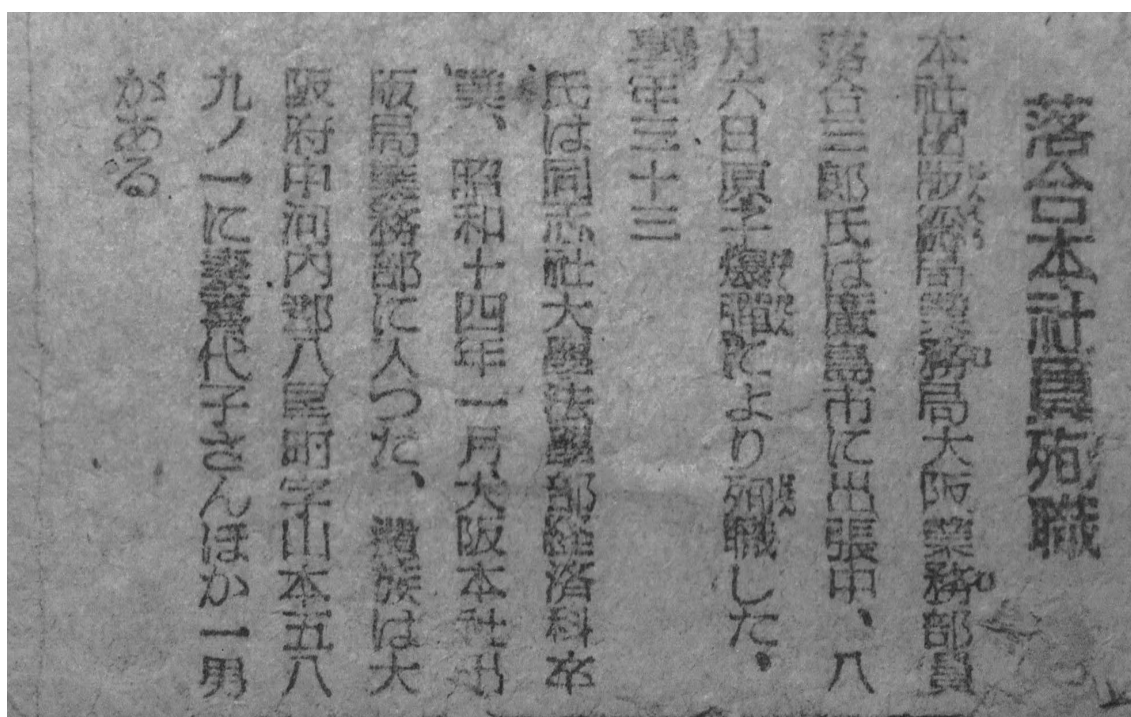 落合本社員殉職
本社出版総局業務局大阪業務部員
落合三郎氏は廣島市に出張中、八
月六日原子爆彈により殉職した、
享年三十三
氏は同志社大學法學部経済科卒
業、昭和十四年一月、大阪本社出
版局業務部に入つた、遺族は大
阪府中河内郡八尾町字山本五八
九ノ一に妻喜代子さんほか一男
がある